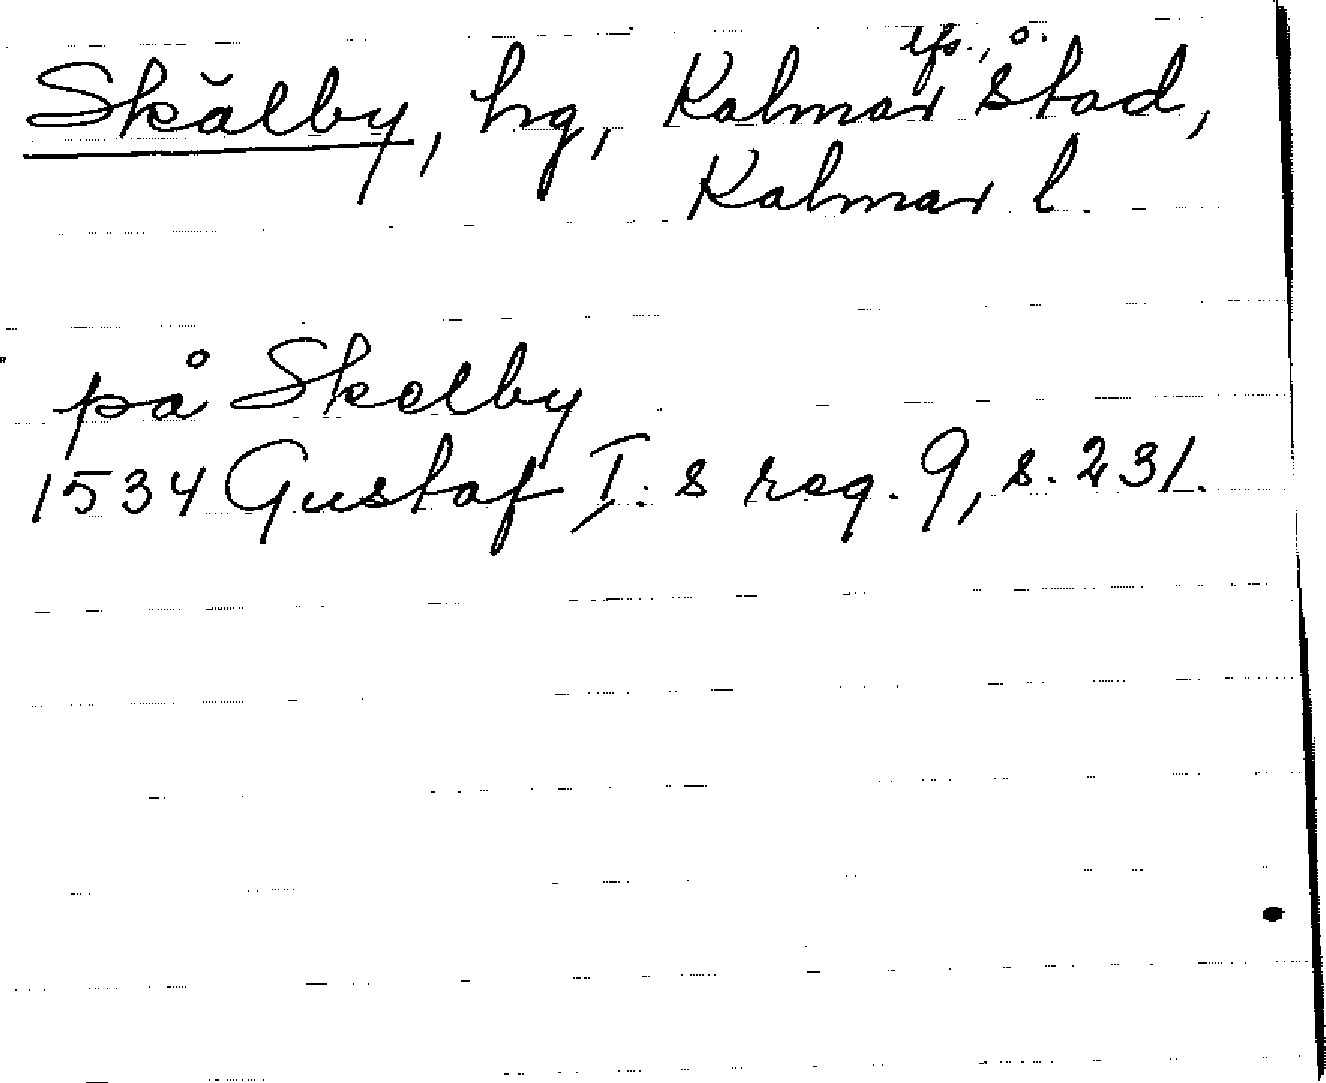 Skälby, hg, Kalmar lfs., o. stad,
Kalmar l.
på Skelby
1534 Gustaf I. s reg. 9, s. 231.